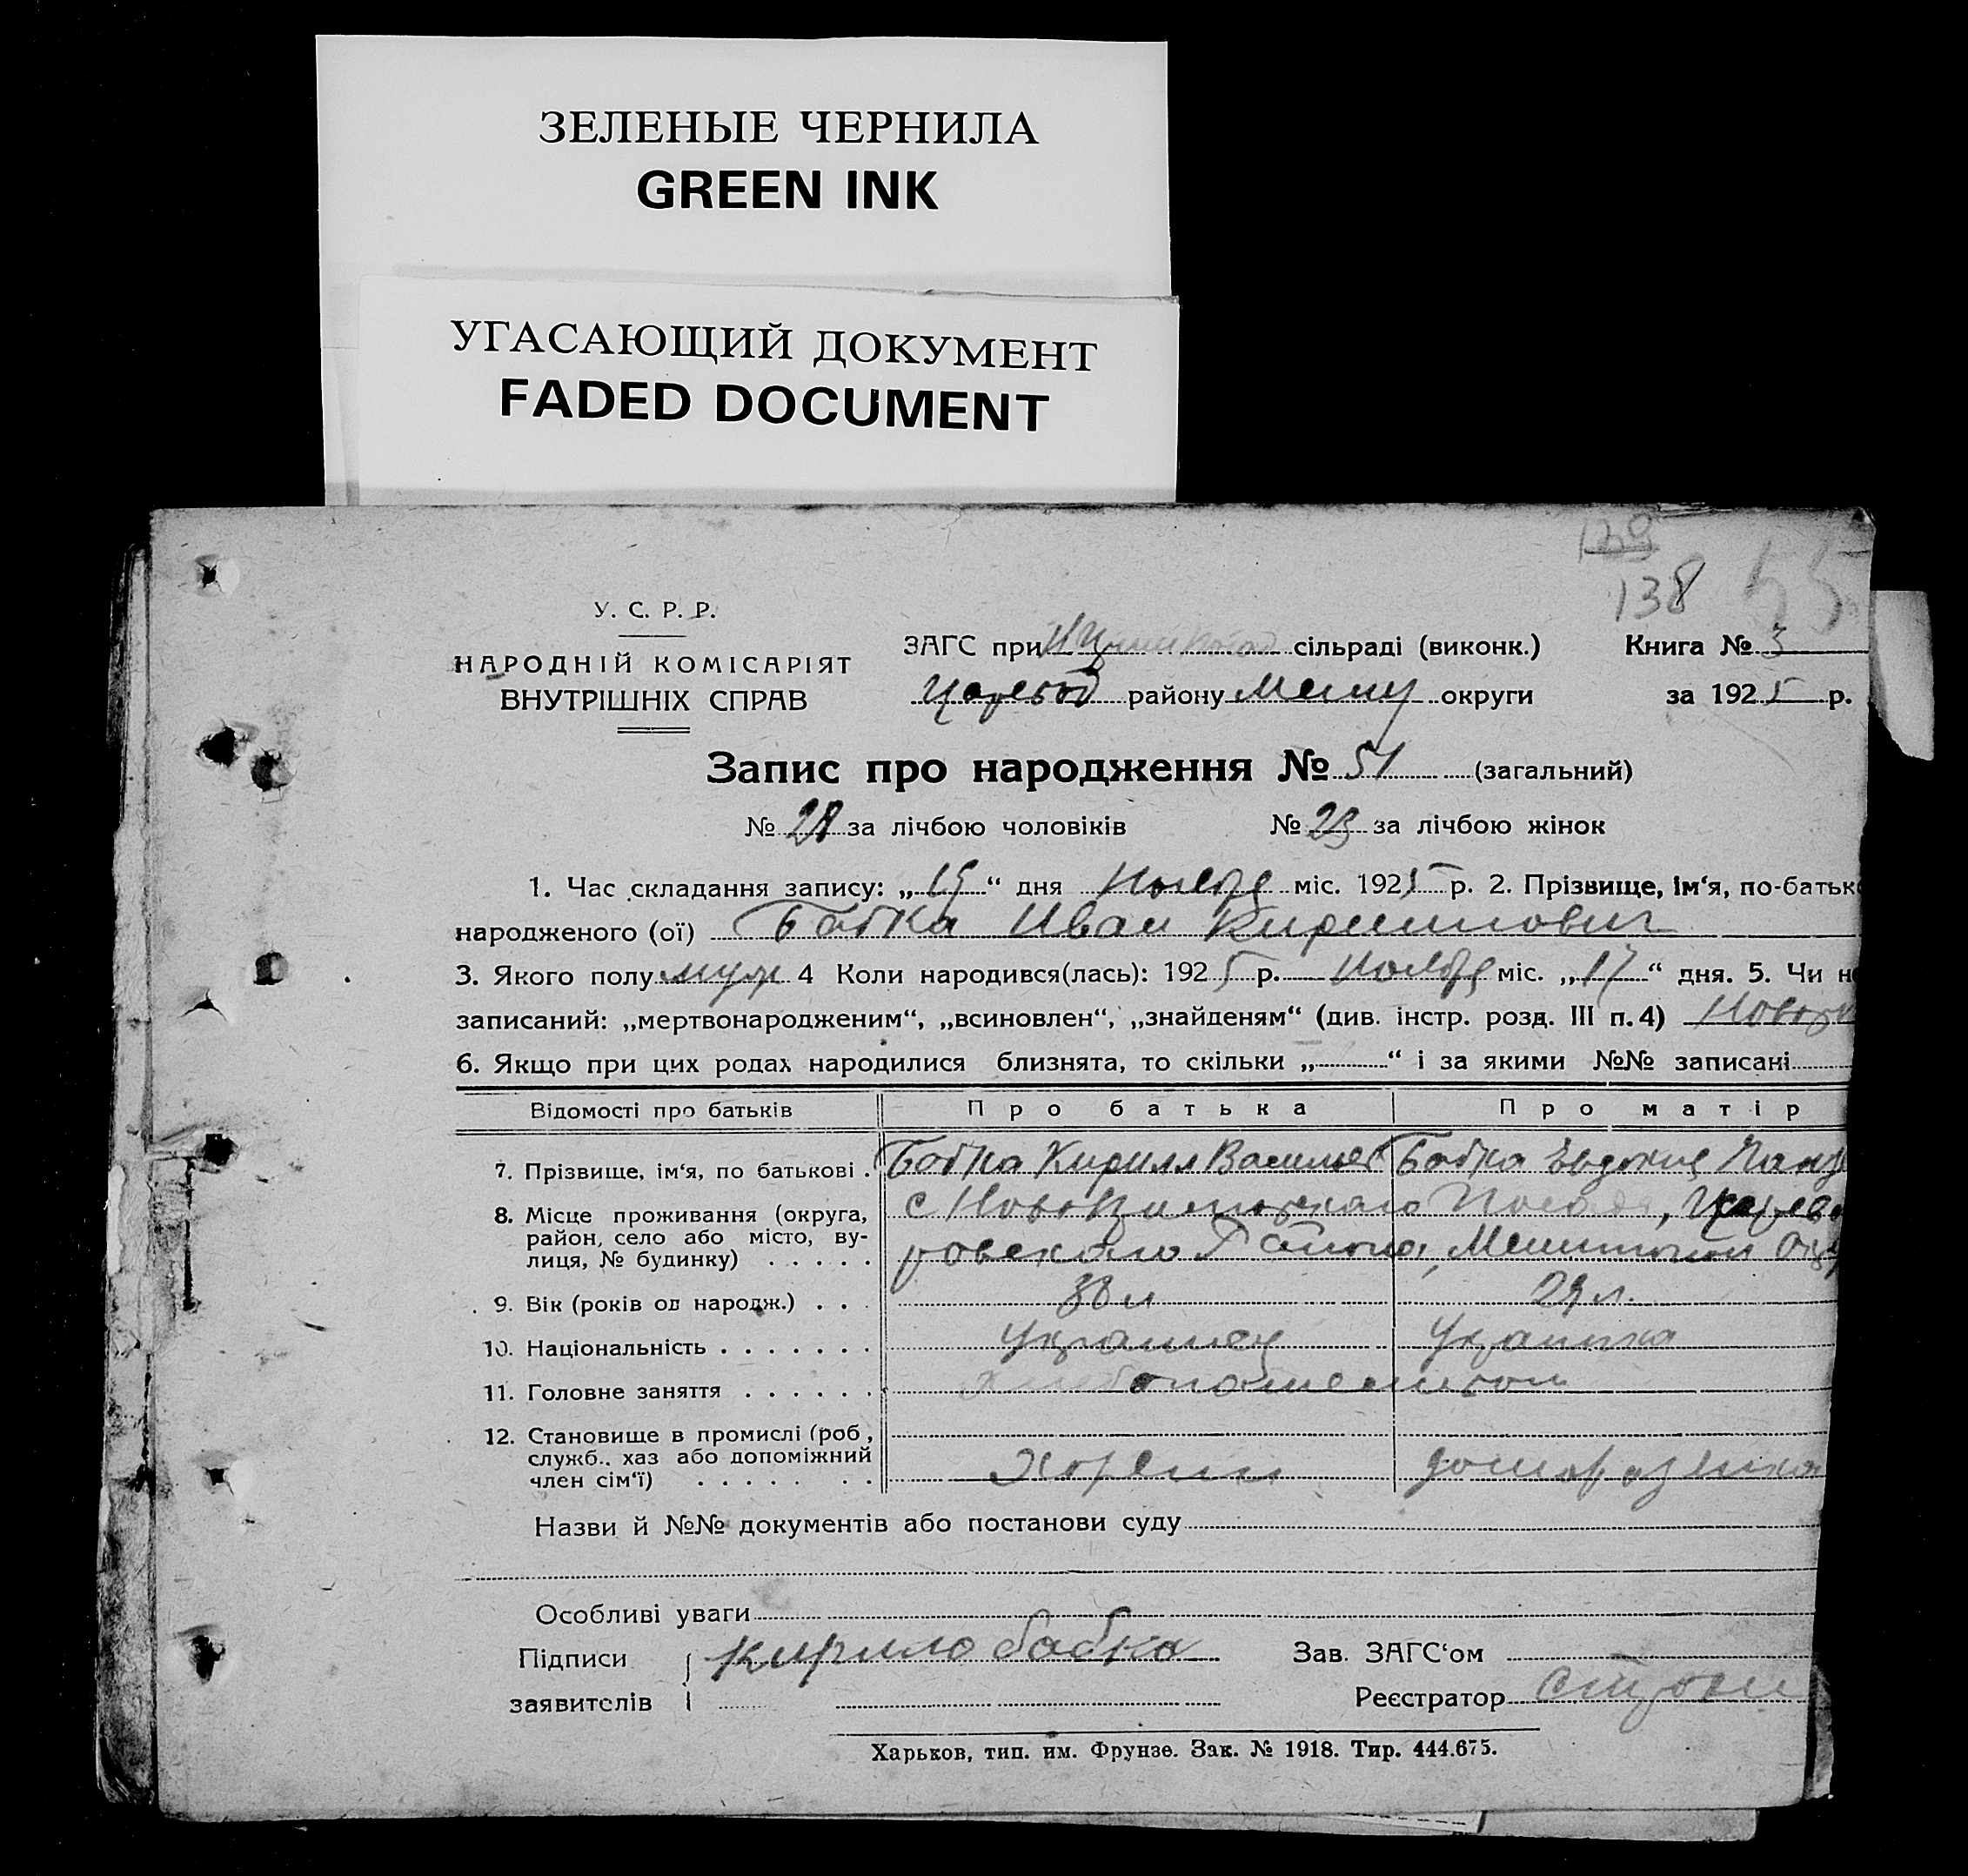 ЗЕЛЕНЫЕ ЧЕРНИЛА
GREEN INK
УГАСАЮЩИЙ ДОКУМЕНТ
FADED DOCUMENT
139
138 55
У. С. Р. Р.
НАРОДНІЙ КОМІСАРІЯТ
ВНУТРІШНІХ СПРАВ
ЗАГС при сільраді (виконк.) Книга № 3
Царевод району округи за 1925 р.
Запис про народження № 51 (загальний)
№ 28 за лічбою чоловіків № 23 за лічбою жінок
1. Час складання запису: „19“ дня Ноября міс. 1925 р. 2. Прізвище, ім‘я, по-батьк
народженого (ої) Бабка Иван Кириллович
3. Якого полу муж 4 Коли народився(лась): 1925 р. Ноября міс. „17“ дня. 5. Чи н
записаний: „мертвонародженим“, „всиновлен“, „знайденям“ (див. інстр. розд. III п. 4)
6. Якщо при цих родах народилися близнята, то скільки „ “ і за якими №№ записані
Відомості про батьків Про батька Про матір
7. Прізвище, ім‘я, по батькові . Бабка Кирилл Васильев Бабка Евдокия
8. Місце проживання (округа, район, село або місто, ву-лиця, № будинку) . . . . . с Посада, Царево
ровского Района,
9. Вік (років од народж.) . . . 38 л 29 л.
10. Національність . . . . . . . Украинец Украинка
11. Головне заняття . . . . . .
12. Становище в промислі (роб,
служб.. хаз або допоміжний
член сім‘ї) . . . . . . .
Назви й №№ документів або постанови суду
Особливі уваги
Підписи кирило бабка Зав. ЗАГС‘ом
заявителів Реєстратор
Харьков, тип. им. Фрунзе. Зак. № 1918. Тир. 444.675.